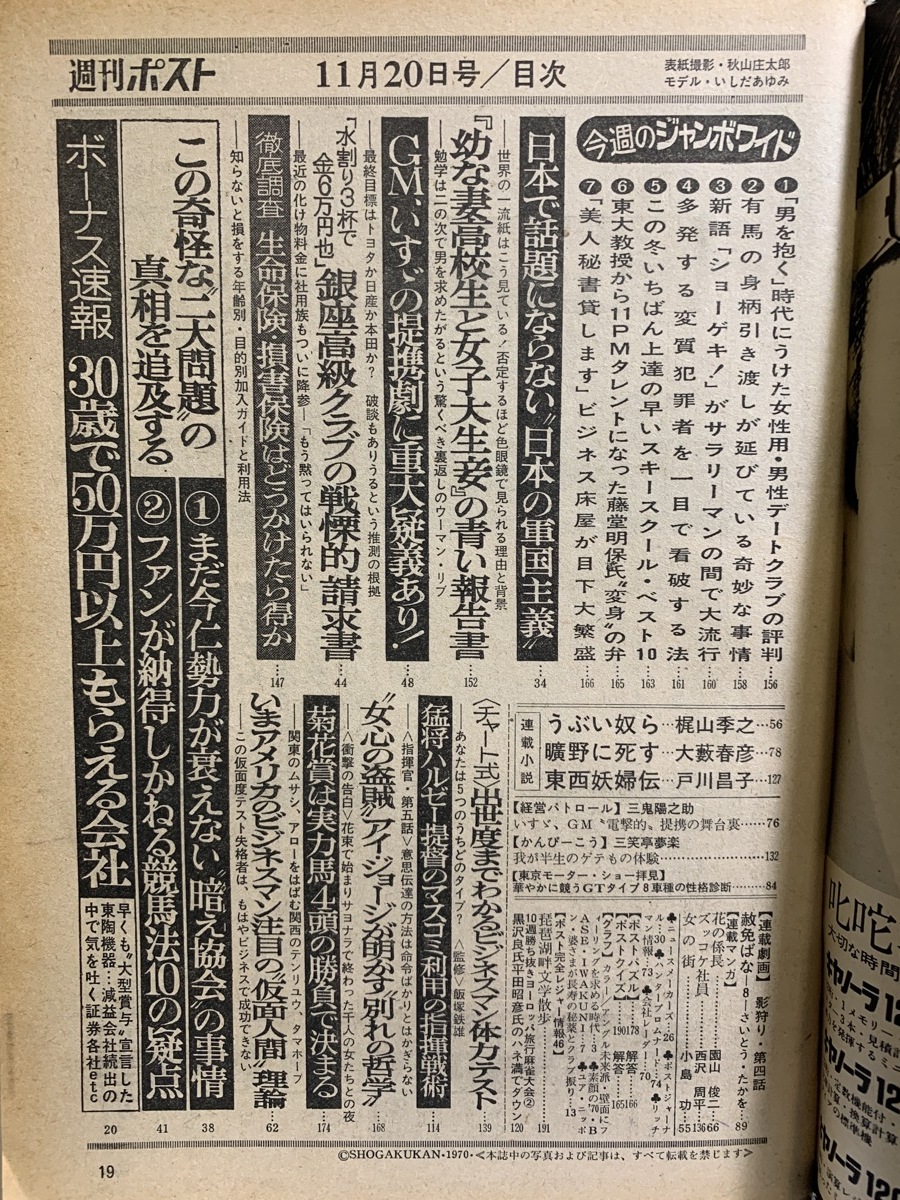 週刊ポスト
11月20日号/目次
表紙撮影・秋山庄太郎
モデル・いしだあゆみ
今週のジャンボワイド
❶「男を抱く」時代にうけた女性用・男性デートクラブの評判……156
❷有馬の身柄引き渡しが延びている奇妙な事情……158
❸新語「ショーゲキ!」がサラリーマンの間で大流行……160
❹多発する変質犯罪者を一目で看破する法……161
❺この冬いちばん上達の早いスキースクール・ベスト10……163
❻東大教授から11PMタレントになった藤堂明保氏〝変身〟の弁……165
❼「美人秘書貸します」ビジネス床屋が目下大繁盛……166
日本で話題にならない〝日本の軍国主義〟……34
―世界の一流紙はこう見ている!否定するほど色眼鏡で見られる理由と背景
『幼な妻高校生と女子大生妾』の青い報告書……152
勉学は二の次で男を求めたがるという驚くべき裏返しのウーマン・リブ
GM、いすゞの提携劇に重大疑義あり!……48
―最終目標はトヨタか日産か本田か? 破談もありうるという推測の根拠
「水割り3杯で金6万円也」銀座高級クラブの戦慄的請求書……44
最近の化け物料金に社用族もついに降参―「もう黙ってはいられない」
徹底調査 生命保険・損害保険はどうかけたら得か……147
―知らないと損をする年齢別・目的別加入ガイドと利用法
この奇怪な〝二大問題〟の真相を追及する
①まだ今仁勢力が衰えない〝暗え協会〟の事情……38
②ファンが納得しかねる競馬法10の疑点……41
ボーナス速報 30歳で50万円以上もらえる会社
早くも〝大型賞与〟宣言した東陶機器…減益会社続出の中で気を吐く証券各社etc
20
連載小説
うぶい奴ら…梶山季之…56
曠野に死す…大藪春彦…78
東西妖婦伝…戸川昌子…127
【経営パトロール】三鬼陽之助
いすゞ、GM〝電撃的〟提携の舞台裏……76
【かんぴーこう】三笑亭夢楽
我が半生のゲテもの体験……132
【東京モーター・ショー拝見】
華やかに競うGTタイプ8車種の性格診断……84
〈チャート式〉出世度までわかるビジネスマン体力テスト……139
あなたは5つのうちどのタイプ? 〈監修〉飯塚鉄雄
猛将ハルゼー提督のマスコミ利用の指揮戦術……114
―〈指揮官・第五話〉意思伝達の方法は命令ばかりとはかぎらない
〝女心の盗賊〟アイ・ジョージが明かす別れの哲学……168
―〈衝撃の告白〉花束で始まりサヨナラで終わった千人の女たちとの夜
菊花賞は実力馬4頭の勝負で決まる……174
関東のムサシ、アローをはばむ関西のテンリュウ、タマホープ
いまアメリカのビジネスマン注目の〝仮面人間〟理論……62
―この仮面度テスト失格者は、もはやビジネスで成功できない
【連載劇画】 影狩り・第四話
赦免ばな―8―さいとう・たかを…89
【連載マンガ】
花の係長……園山 俊二…66
ズッコケ社員……西沢 周平…136
女の街……小島 功…55
【ポストパズル】……178 解答…166
【ポストクイズ】……190 解答…165
【ポスト完全レジャー情報46】
琵琶湖畔文学散歩……191
10週勝ち抜きヨーロッパ旅行麻雀大会②
黒沢良氏平田昭彦氏のハネ満でダウン……120
19
©SHOGAKUKAN・1970・≪本誌中の写真および記事は、すべて転載を禁じます≫
叱咤